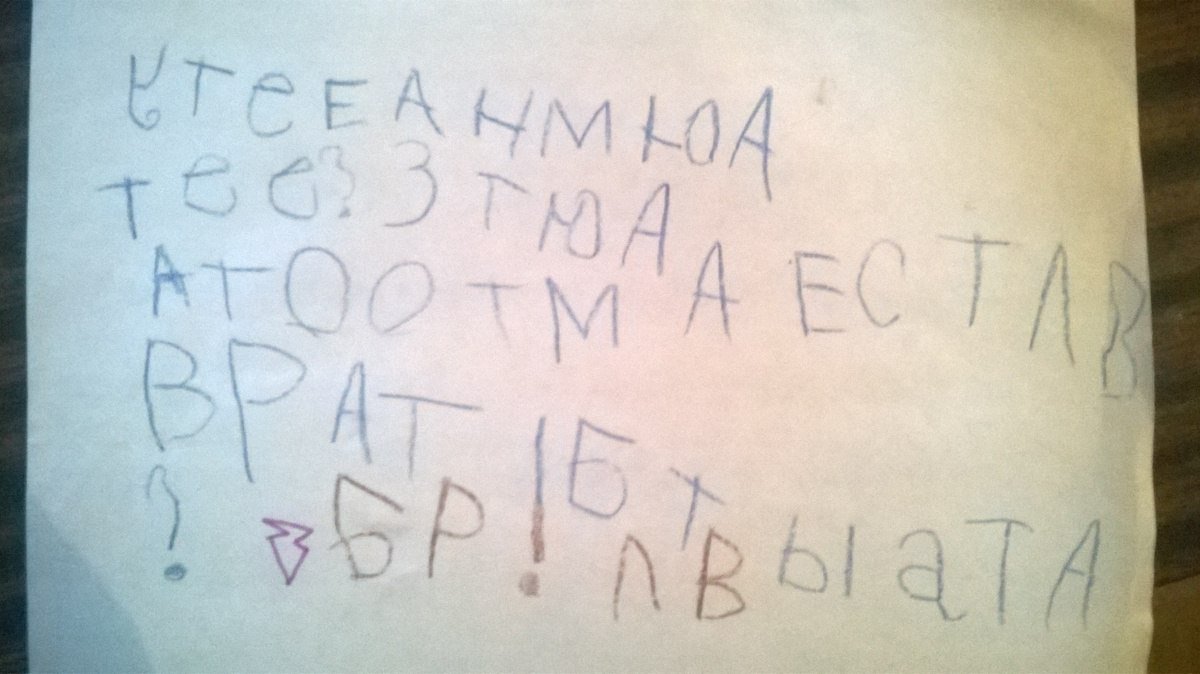 УТЕЕАНМЮА
ТЕЕ?ЗТЮА
АТООТМАЕСТЛВ
ВРАТ!БТ
?БР!ЛВЫАТА